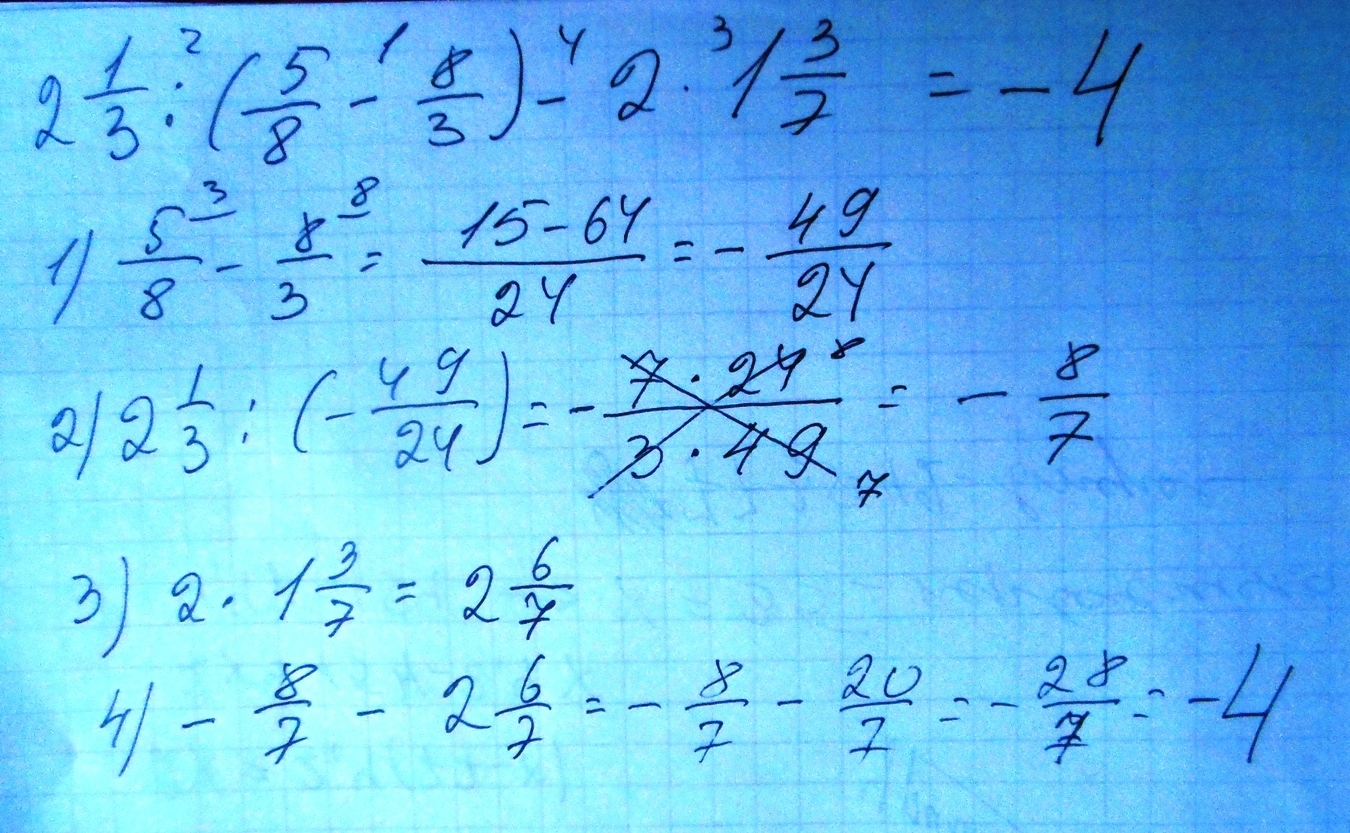 2 1/3 :² (5/8 -¹ 8/3) -⁴ 2 ·³ 1 3/7 = -4
1) 5/8 ³ - 8/3 ⁸ = (15-64)/24 = - 49/24
2) 2 1/3 : (- 49/24) = - (7 · 24 ⁸)/(3 · 49 ₇) = - 8/7
3) 2 · 1 3/7 = 2 6/7
4) - 8/7 - 2 6/7 = - 8/7 - 20/7 = - 28/7 = -4